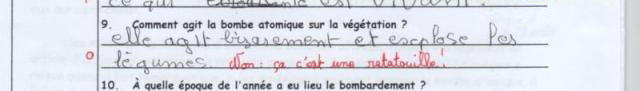 ce qui est vivant.
9. Comment agit la bombe atomique sur la végétation ?
elle agit bizarement et explose les
0 légumes. Non : ça c'est une ratatouille !
10. À quelle époque de l'année a eu lieu le bombardement ?